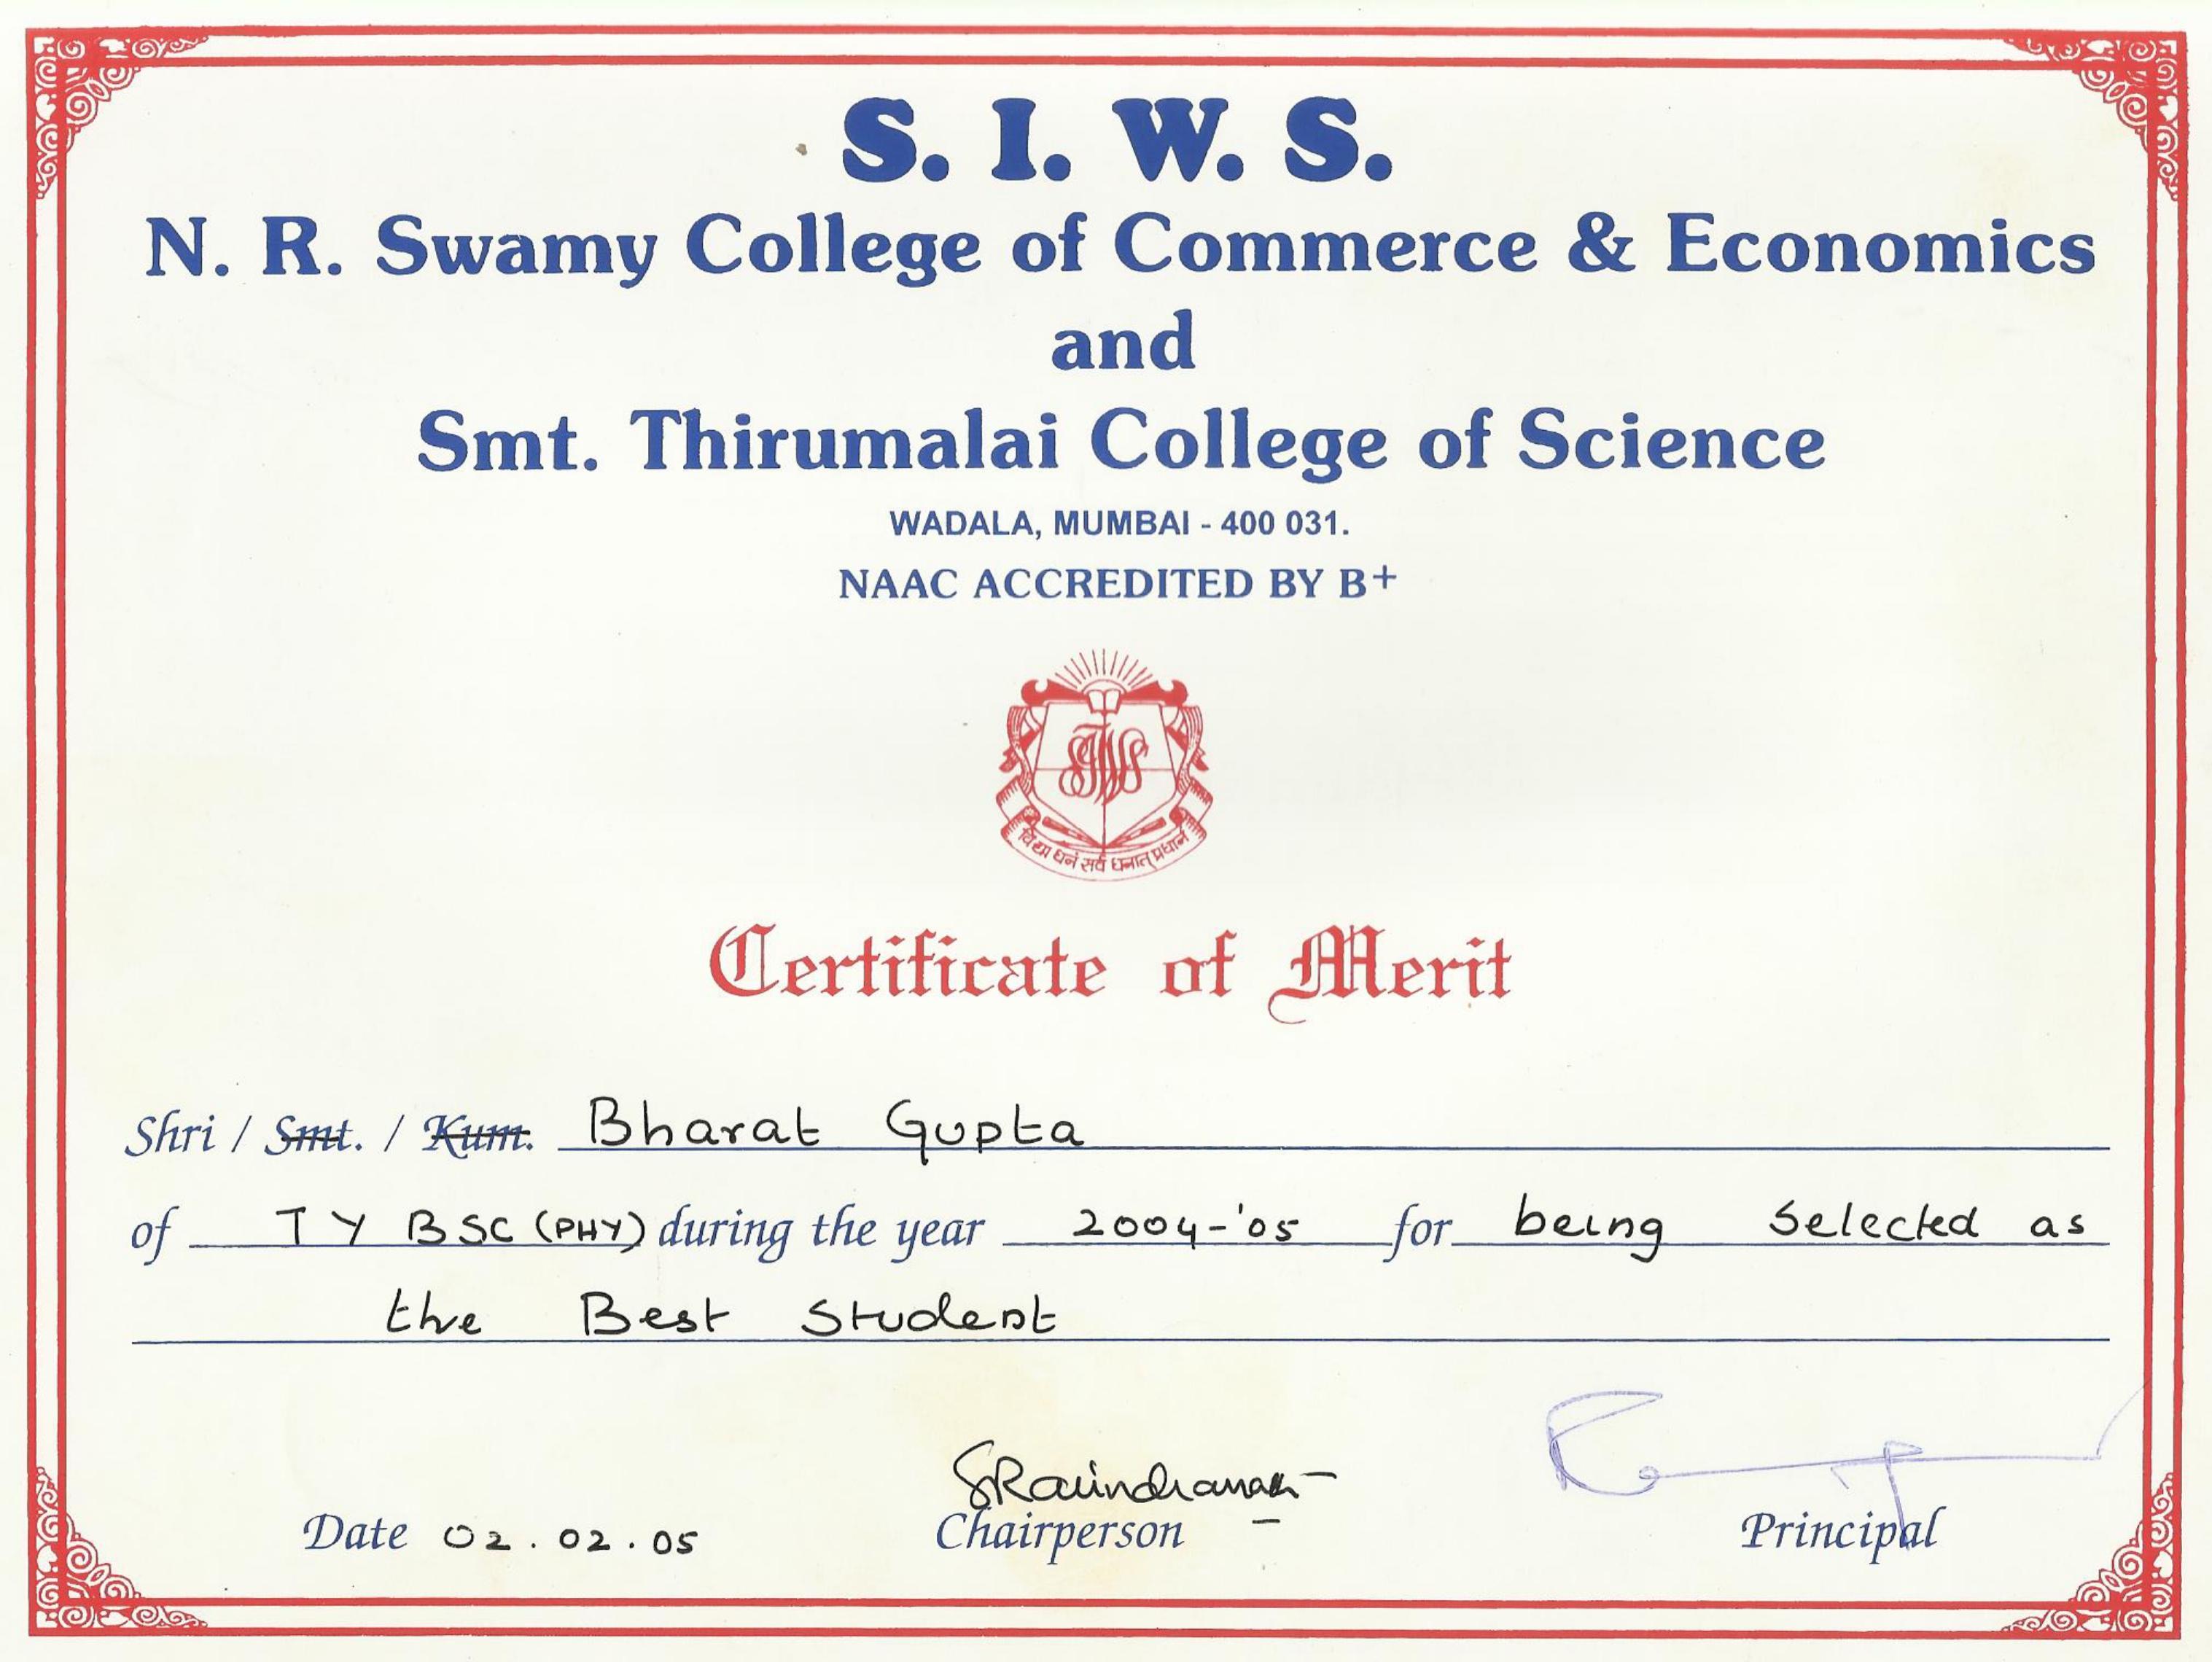 S. I. W. S.
N. R. Swamy College of Commerce & Economics
and
Smt. Thirumalai College of Science
WADALA, MUMBAI - 400 031.
NAAC ACCREDITED BY B+
SIWS
विद्या धनं सर्व धनात् प्रधानं
Certificate of Merit
Shri / Smt. / Kum. Bharat Gupta
of TY BSC (PHY) during the year 2004-'05 for being Selected as
the Best Student
SRavindranath
Date 02.02.05 Chairperson Principal